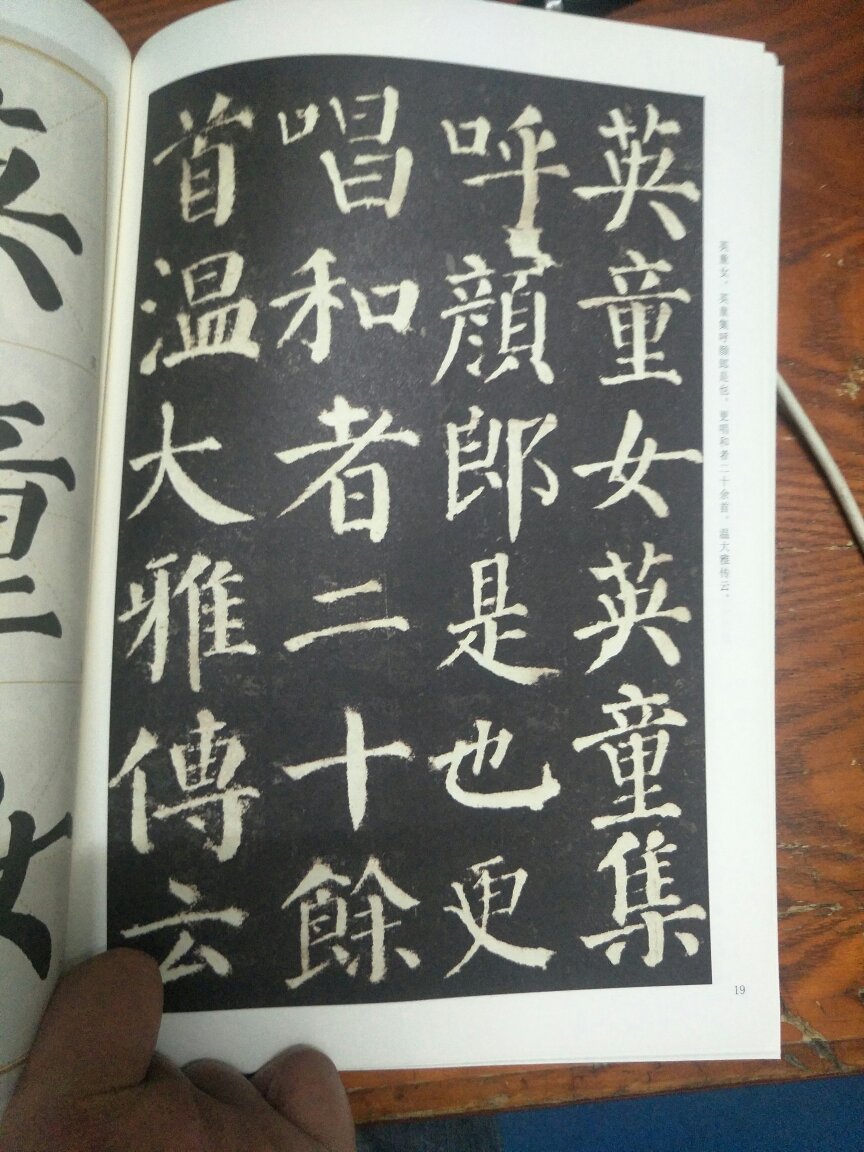 英童女英童集
呼顔郎是也更
唱和者二十餘
首温大雅傳云
英童女，英童集呼颜郎是也，更唱和者二十余首，温大雅传云，
19
英
童
女